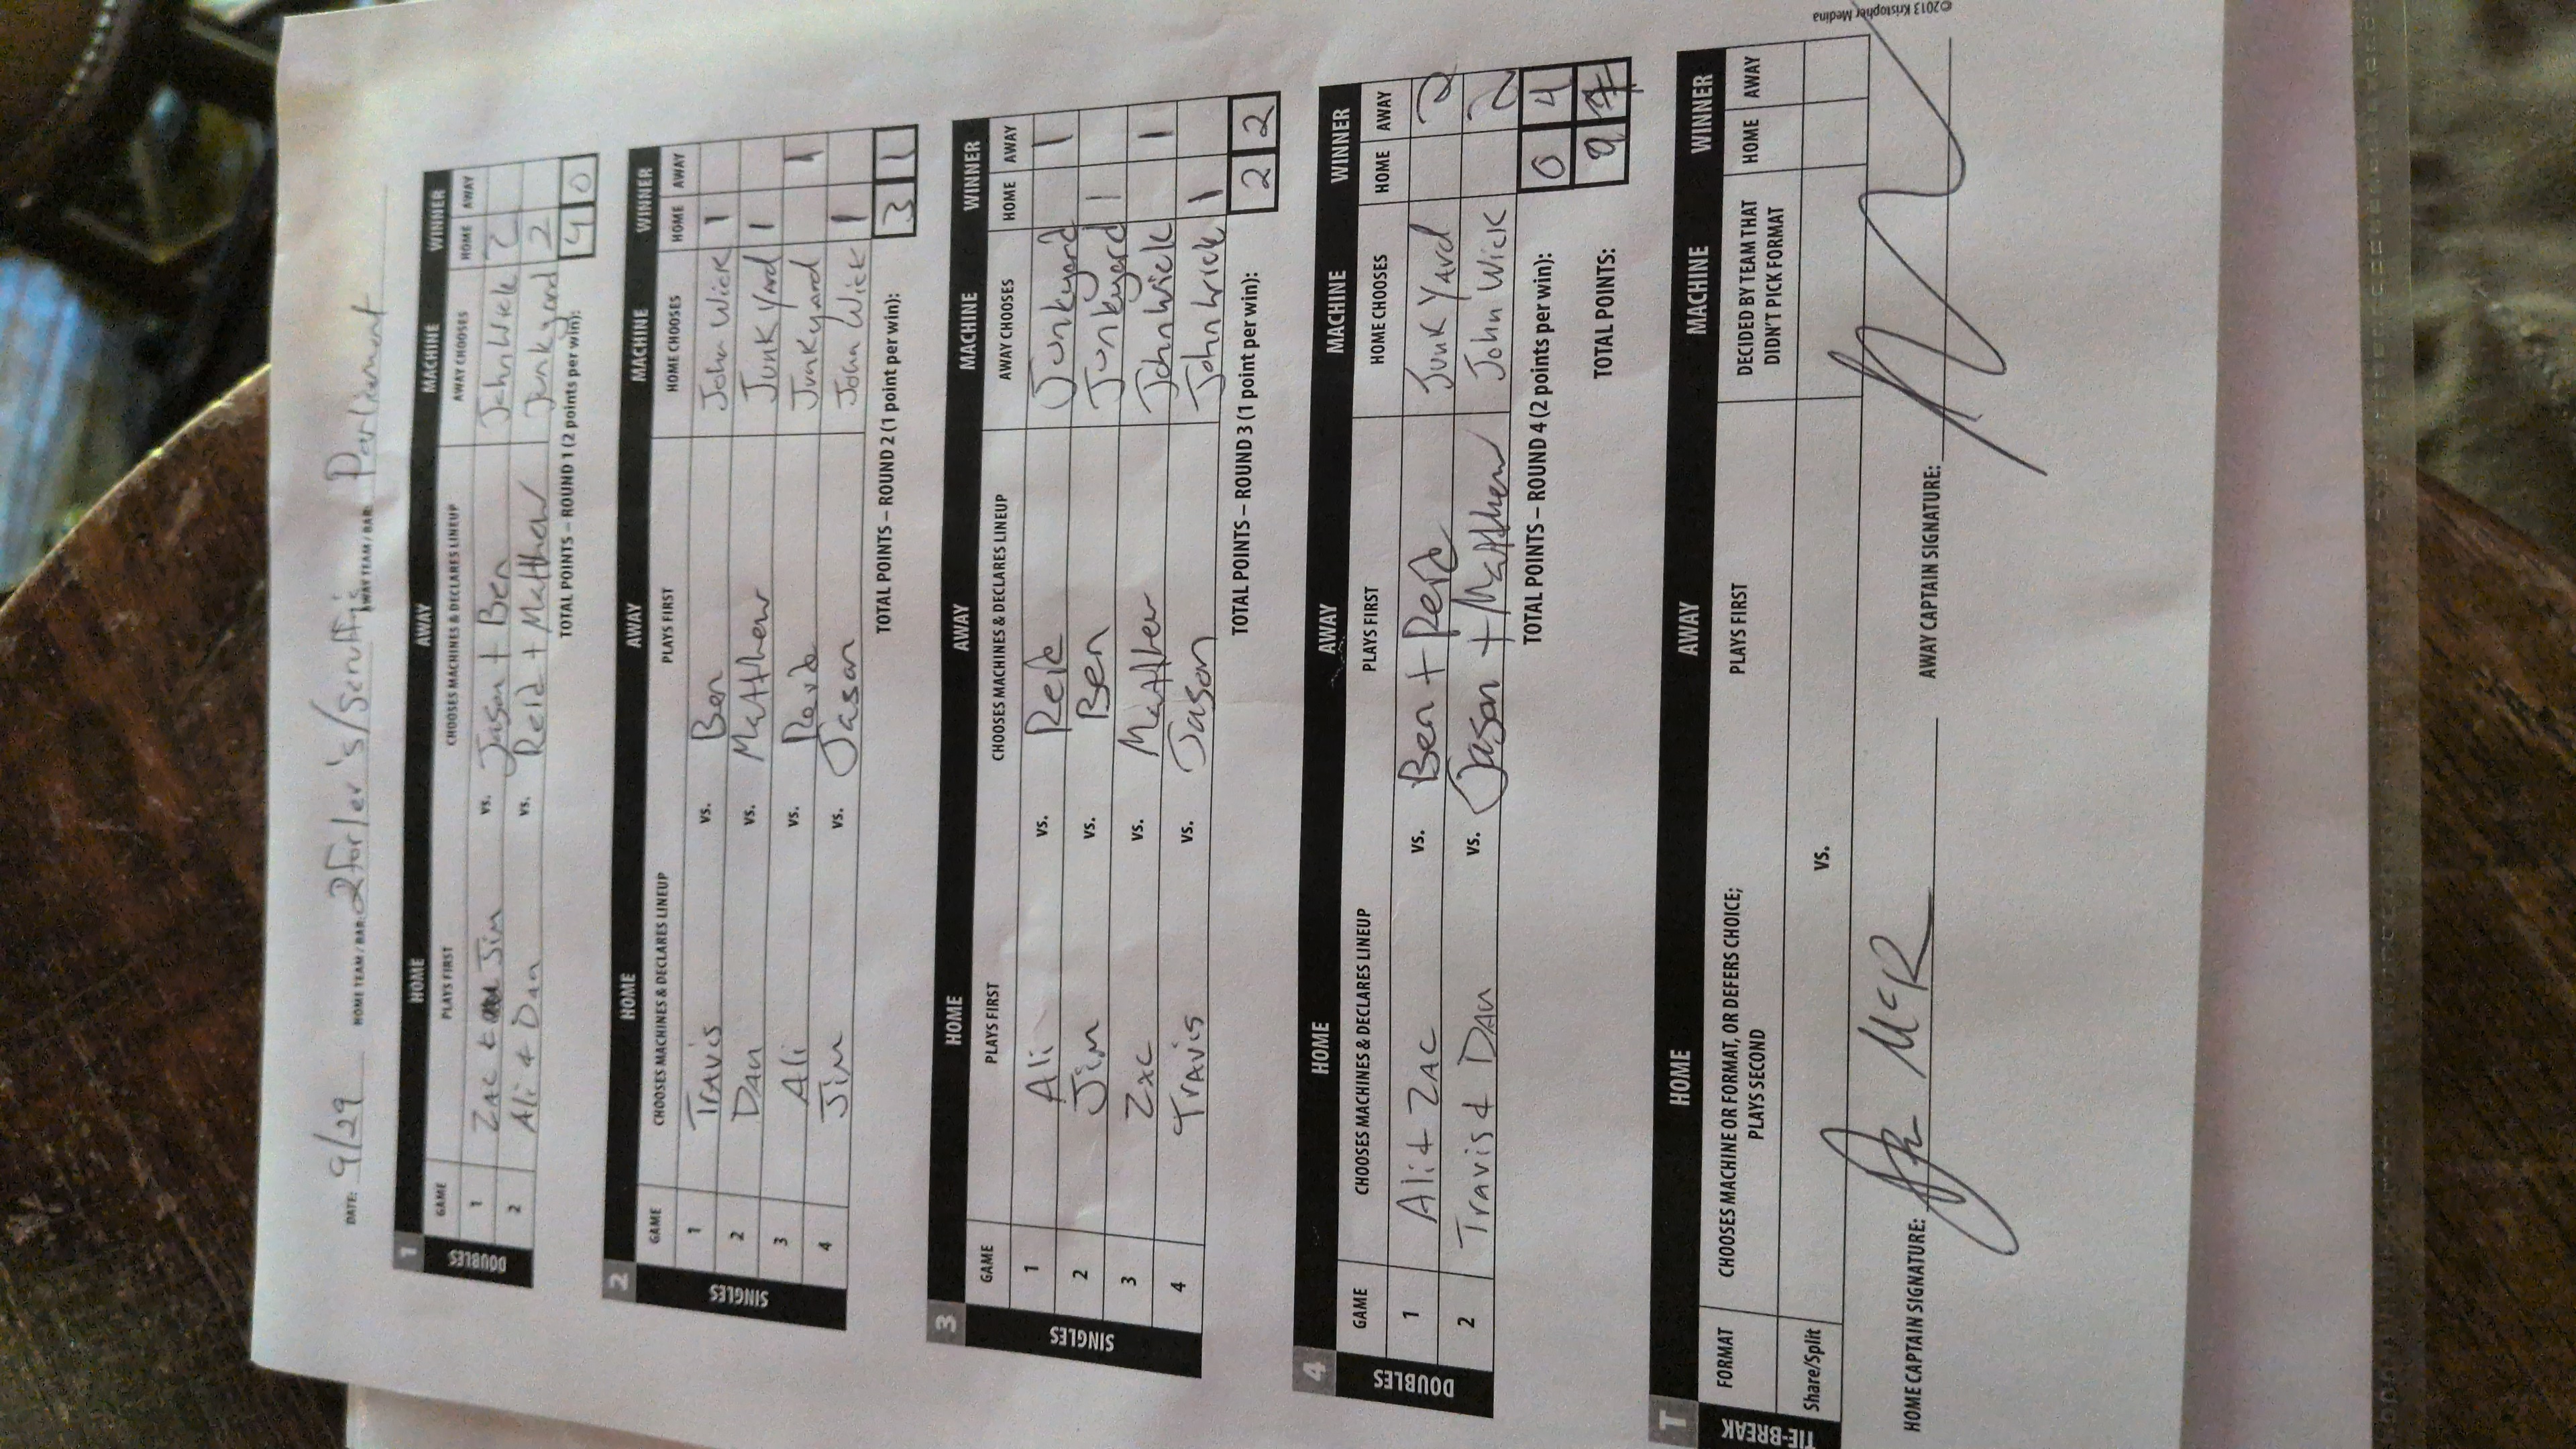 DATE: 9/29 HOME TEAM / BAR: 2forler's/Scruffy's AWAY TEAM / BAR: Parliament
1 HOME AWAY MACHINE WINNER
DOUBLES
GAME PLAYS FIRST CHOOSES MACHINES & DECLARES LINEUP AWAY CHOOSES HOME AWAY
1 Zac & Jim vs. Jason + Ben John Wick 2
2 Ali & Dan vs. Reid + Matthew Junkyard 2
TOTAL POINTS – ROUND 1 (2 points per win): 4 0
2 HOME AWAY MACHINE WINNER
SINGLES
GAME CHOOSES MACHINES & DECLARES LINEUP PLAYS FIRST HOME CHOOSES HOME AWAY
1 Travis vs. Ben John Wick 1
2 Dan vs. Matthew Junk Yard 1
3 Ali vs. Reid Junkyard 1
4 Jim vs. Jason John Wick 1
TOTAL POINTS – ROUND 2 (1 point per win): 3 1
3 HOME AWAY MACHINE WINNER
SINGLES
GAME PLAYS FIRST CHOOSES MACHINES & DECLARES LINEUP AWAY CHOOSES HOME AWAY
1 Ali vs. Reid Junkyard 1
2 Jim vs. Ben Junkyard 1
3 Zac vs. Matthew John Wick 1
4 Travis vs. Jason John Wick 1
TOTAL POINTS – ROUND 3 (1 point per win): 2 2
4 HOME AWAY MACHINE WINNER
DOUBLES
GAME CHOOSES MACHINES & DECLARES LINEUP PLAYS FIRST HOME CHOOSES HOME AWAY
1 Ali + Zac vs. Ben + Reid Junk Yard 2
2 Travis & Dan vs. Jason + Matthew John Wick 2
TOTAL POINTS – ROUND 4 (2 points per win): 0 4
TOTAL POINTS: 9 7
T HOME AWAY MACHINE WINNER
TIE-BREAK
FORMAT CHOOSES MACHINE OR FORMAT, OR DEFERS CHOICE; PLAYS SECOND PLAYS FIRST DECIDED BY TEAM THAT DIDN'T PICK FORMAT HOME AWAY
Share/Split vs.
HOME CAPTAIN SIGNATURE: McR AWAY CAPTAIN SIGNATURE:
©2013 Kristopher Medina